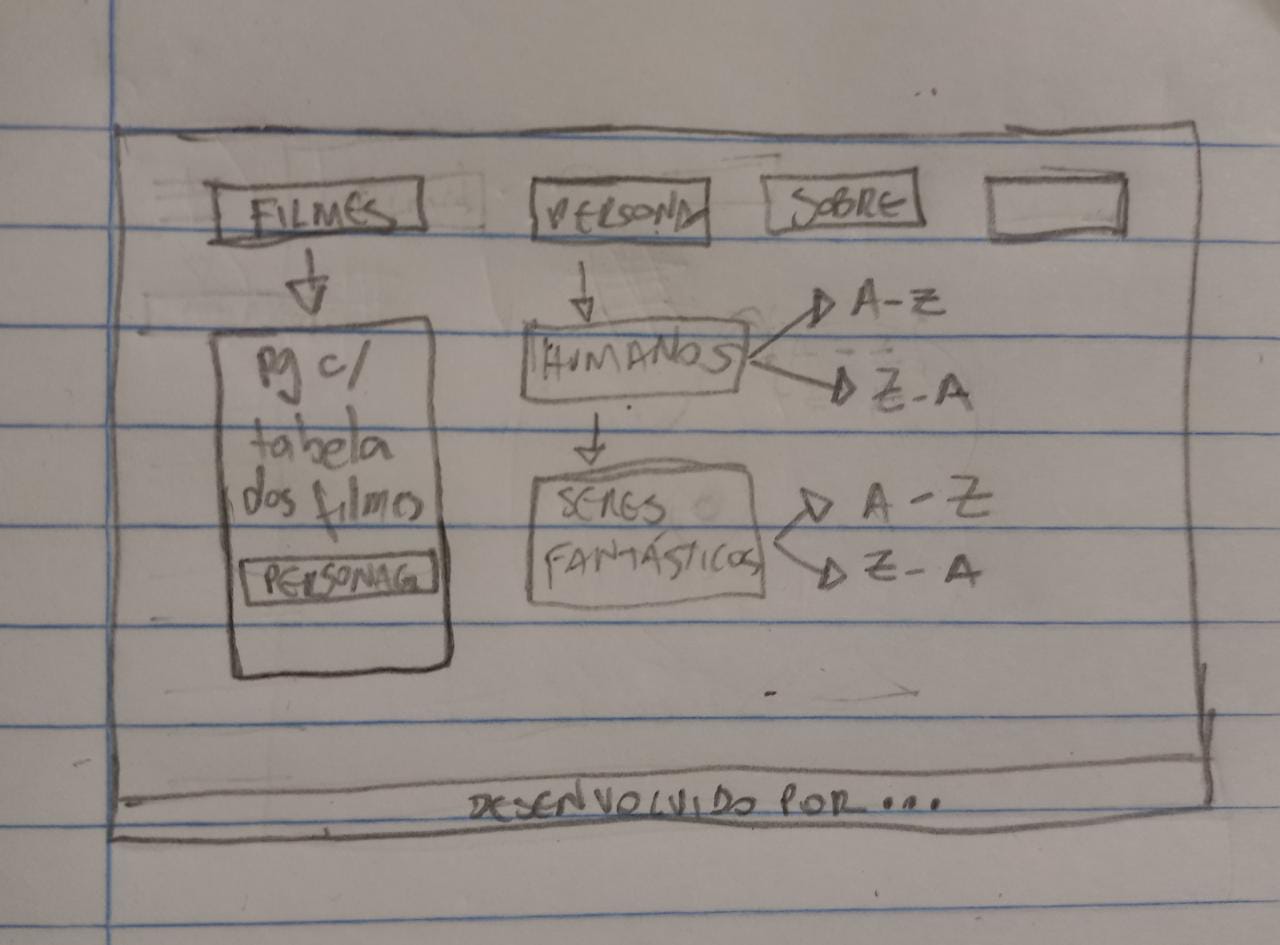 FILMES
PERSONA
SOBRE
pg c/
tabela
dos filmes
PERSONAG
HUMANOS
A-Z
Z-A
SERES
FANTÁSTICOS
A-Z
Z-A
DESENVOLVIDO POR...